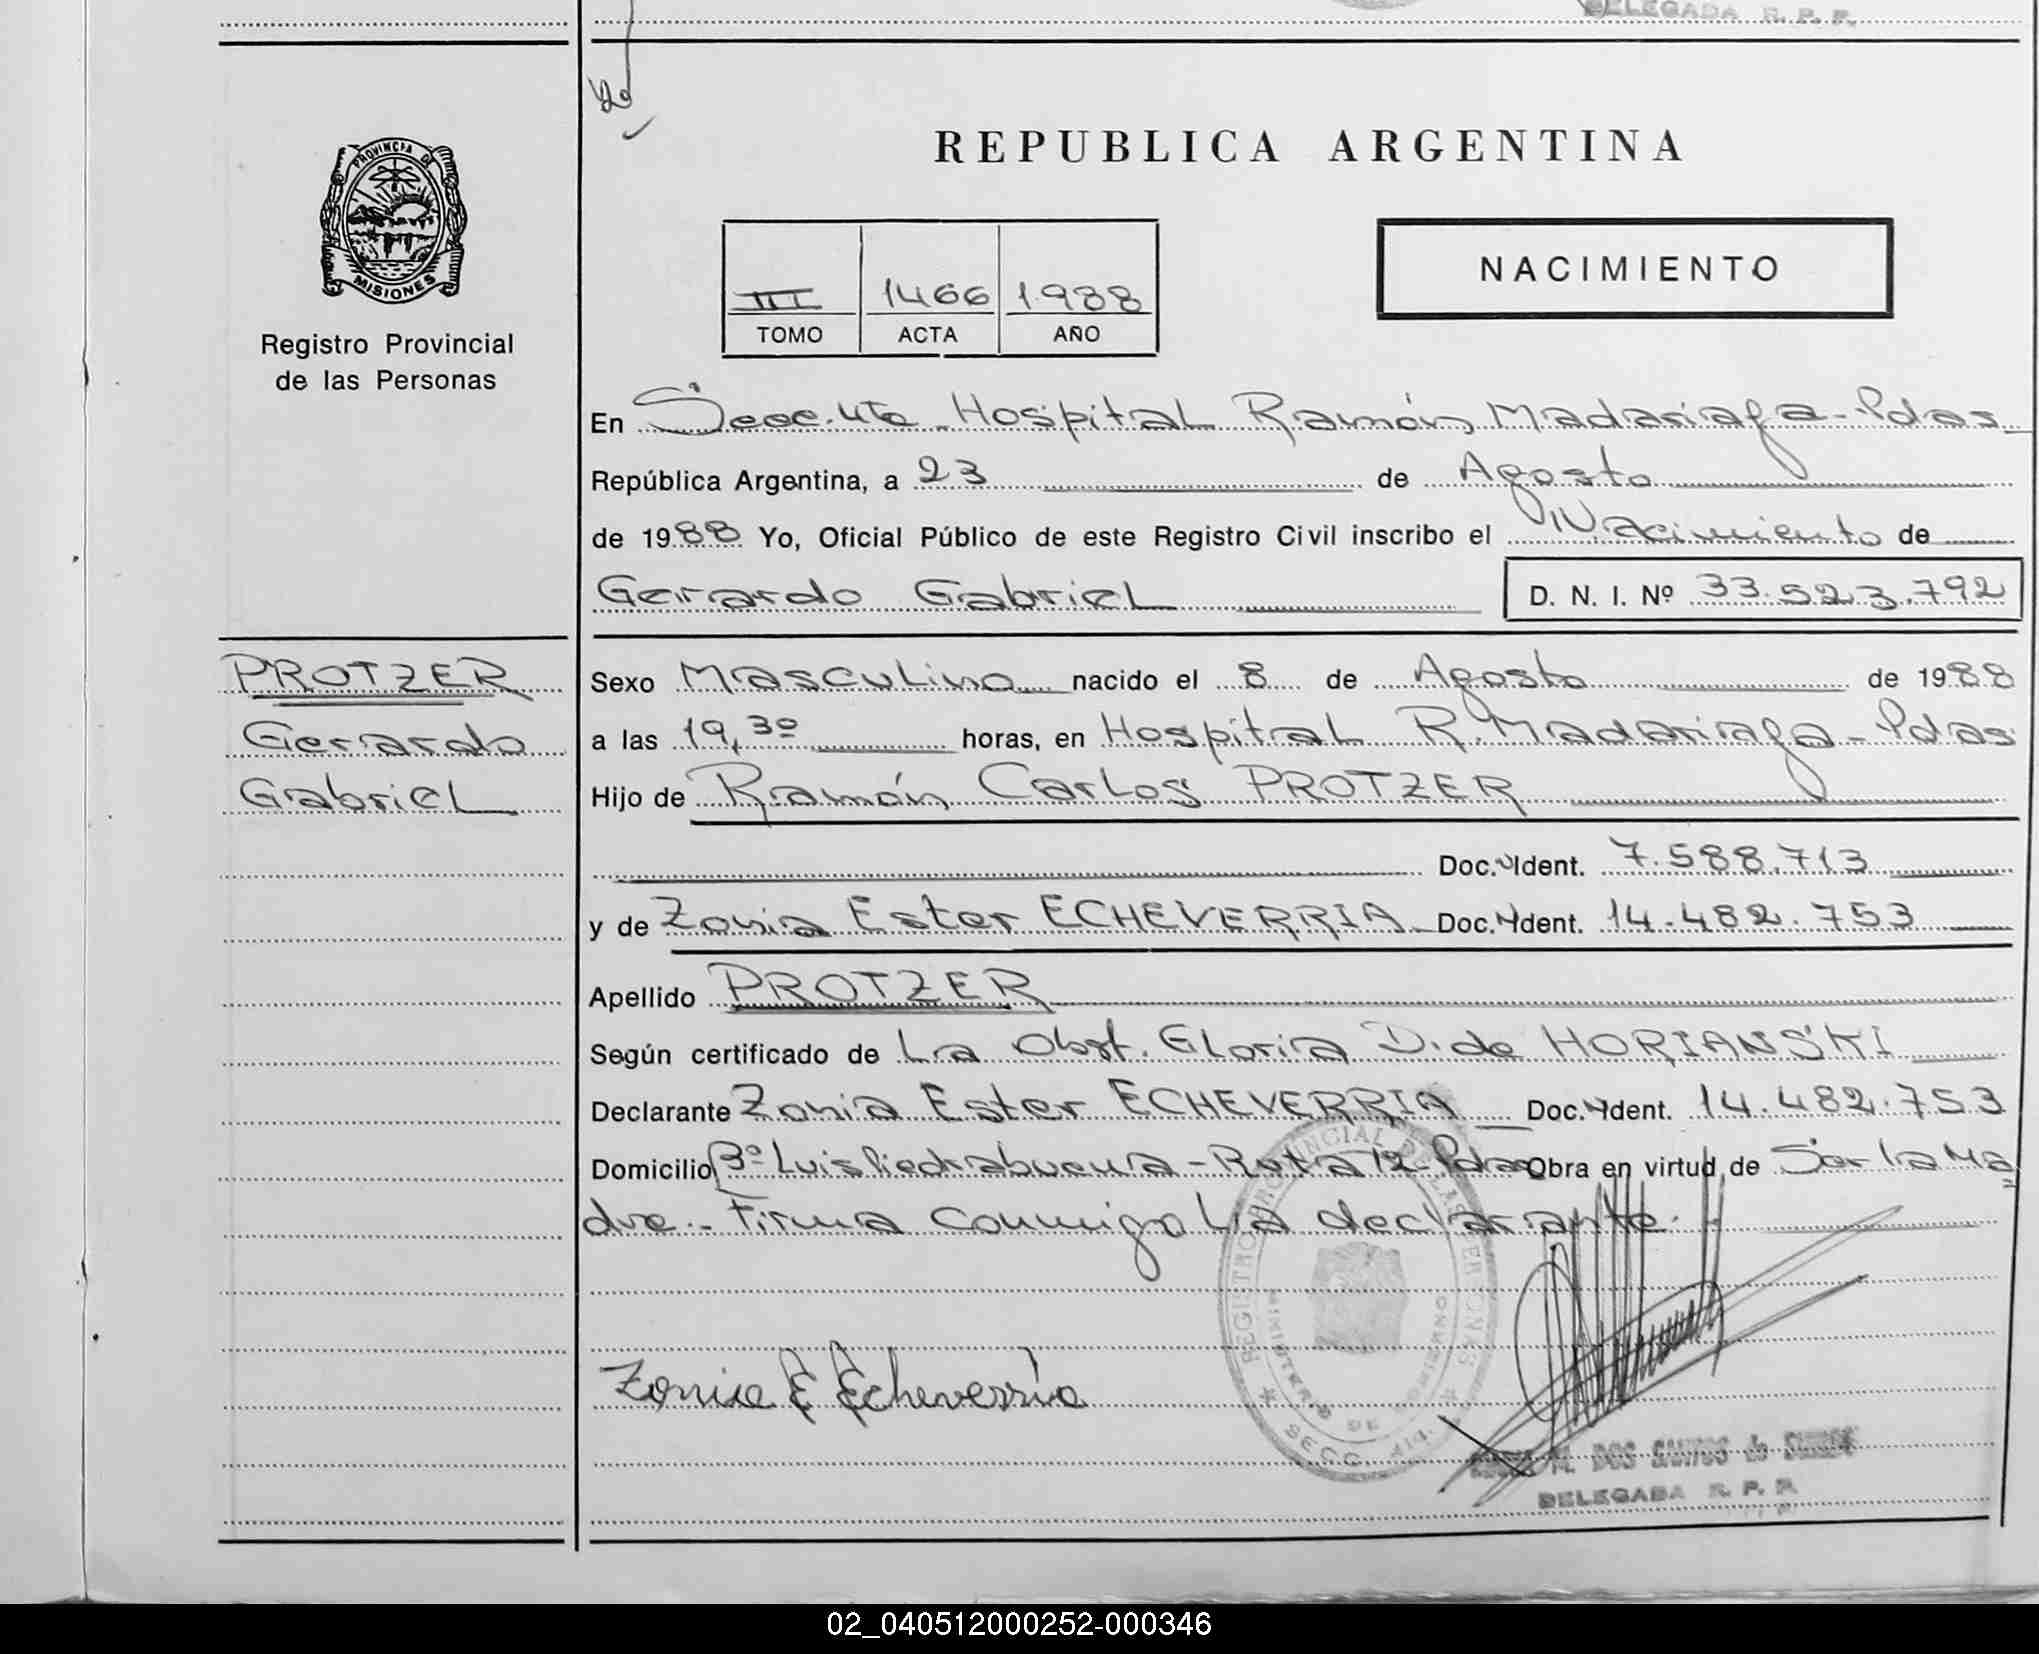 DELEGADA R. P. P.
REPUBLICA ARGENTINA
PROVINCIA DE
MISIONES
Registro Provincial
de las Personas
NACIMIENTO
III 1466 1.988
TOMO ACTA AÑO
En Secc. 4ta Hospital Ramón Madariaga - Pdas
República Argentina, a 23 de Agosto
de 1988 Yo, Oficial Público de este Registro Civil inscribo el Nacimiento de
Gerardo Gabriel D. N. I. Nº 33.523.792
PROTZER
Gerardo
Gabriel
Sexo Masculino nacido el 8 de Agosto de 1988
a las 19,30 horas, en Hospital R. Madariaga - Pdas
Hijo de Ramón Carlos PROTZER
Doc. Ident. 7.588.713
y de Zonia Ester ECHEVERRIA Doc. Ident. 14.482.753
Apellido PROTZER
Según certificado de La Obst. Gloria D. de HORIANSKI
Declarante Zonia Ester ECHEVERRIA Doc. Ident. 14.482.753
Domicilio Bº Luis Piedrabuena - Ruta 12 - Pdas Obra en virtud de Ser la Ma
dre.- Firma conmigo La declarante.
REGISTRO PROVINCIAL DE LAS PERSONAS
MINISTERIO DE GOBIERNO
SECC. 4ta.
Zonia E Echeverria
M. DOS SANTOS de
DELEGADA R. P. P.
02_040512000252-000346